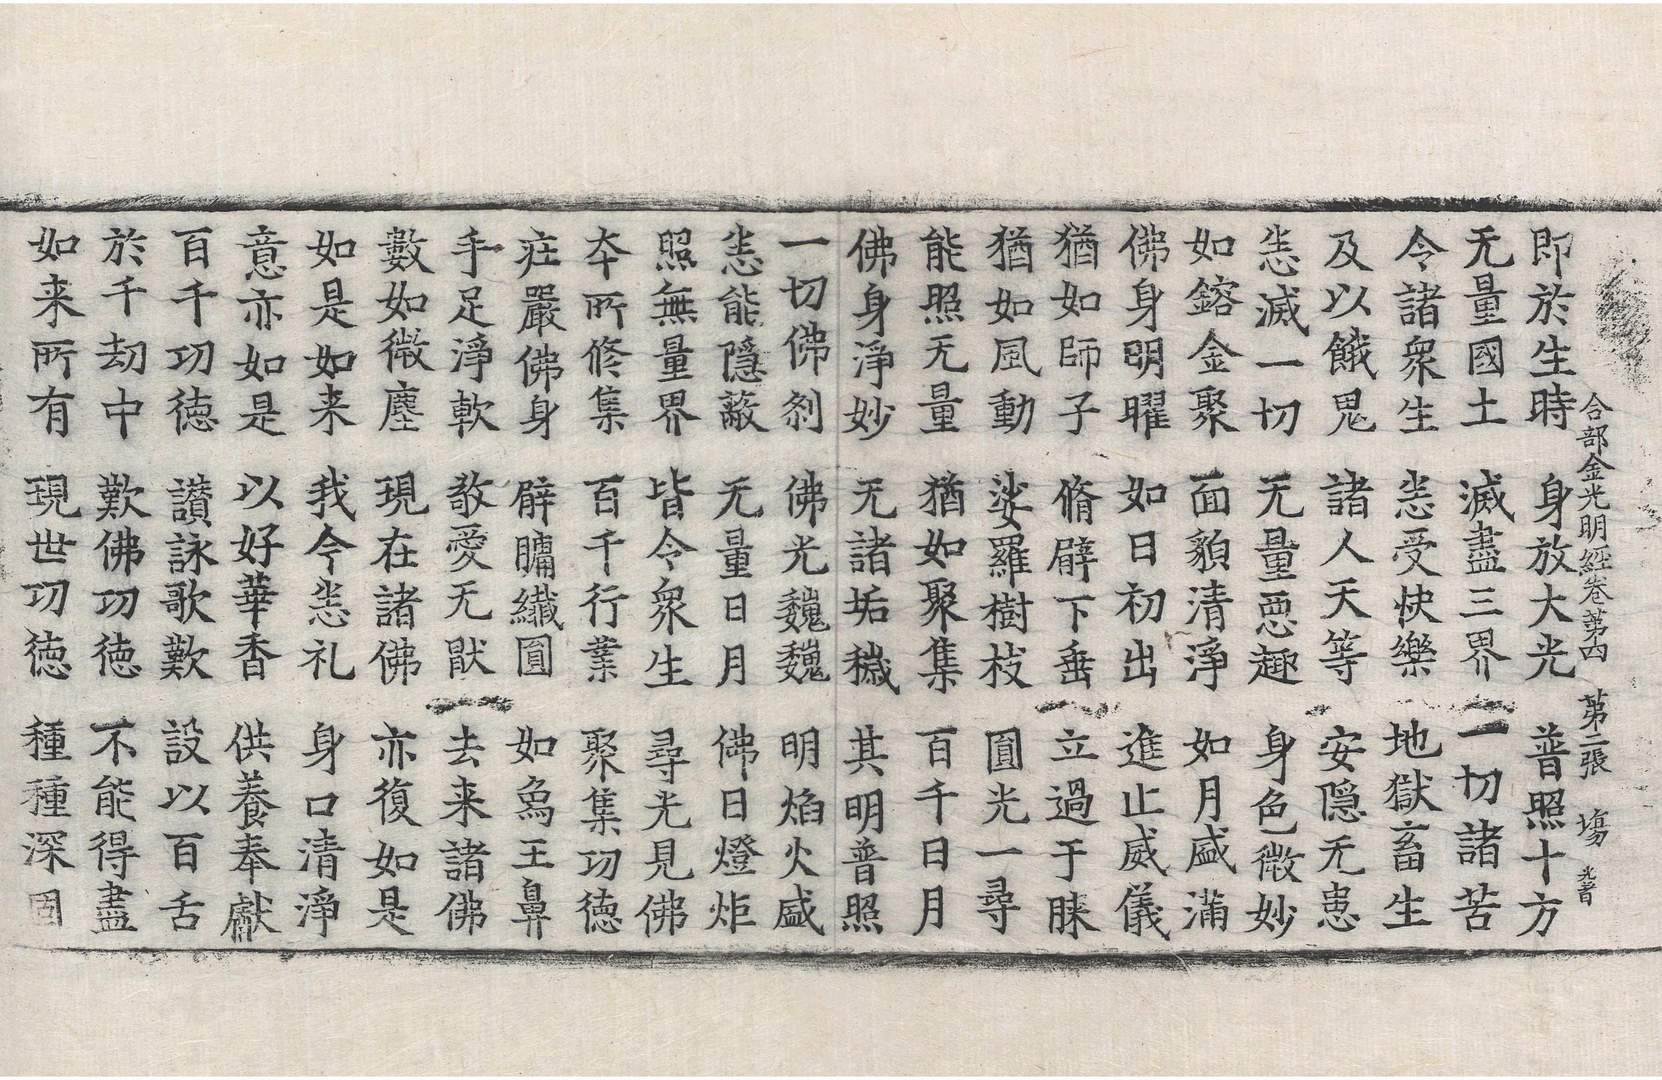 合部金光明經卷苐四 苐二張 塲 光耆
即於生時 身放大光 普照十方
无量國土 滅盡三界 一切諸苦
令諸衆生 悉受快樂 地獄畜生
及以餓鬼 諸人天等 安隠无患
悉滅一切 无量惡趣 身色微妙
如鎔金聚 面貌清淨 如月盛滿
佛身明曜 如日初出 進止威儀
猶如師子 脩臂下垂 立過于膝
猶如風動 娑羅樹枝 圓光一尋
能照无量 猶如聚集 百千日月
佛身淨妙 无諸垢穢 其明普照
一切佛刹 佛光巍巍 明焰火盛
悉能隱蔽 无量日月 佛日燈炬
照無量界 皆令衆生 尋光見佛
本所修集 百千行業 聚集功徳
莊嚴佛身 臂𦟛纖圓 如象王鼻
手足淨軟 敬愛无猒 去来諸佛
數如微塵 現在諸佛 亦復如是
如是如来 我今悉礼 身口清淨
意亦如是 以好華香 供養奉獻
百千功徳 讃詠歌歎 設以百舌
於千劫中 歎佛功徳 不能得盡
如来所有 現世功徳 種種深固